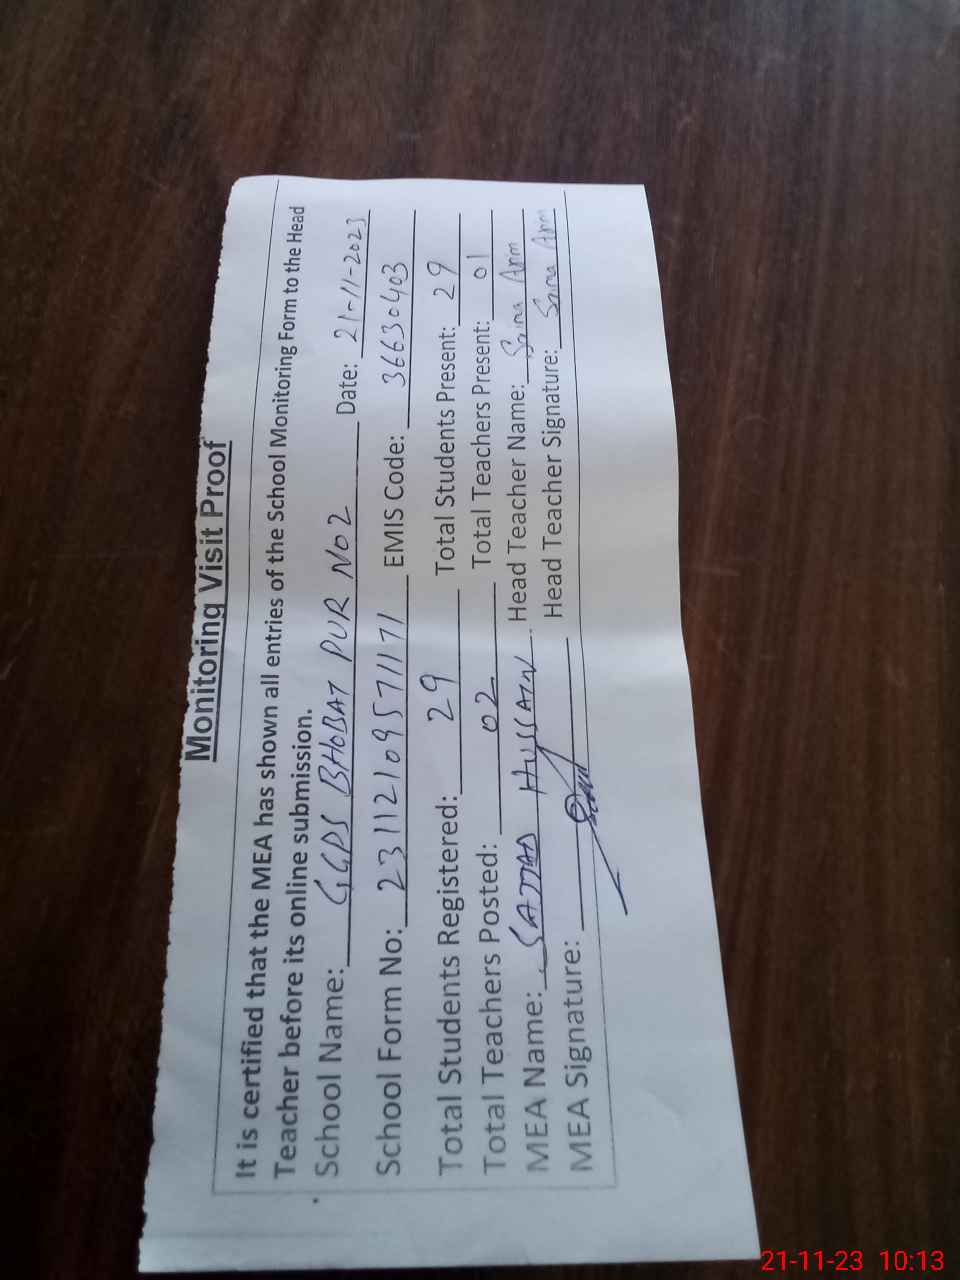 Monitoring Visit Proof
It is certified that the MEA has shown all entries of the School Monitoring Form to the Head
Teacher before its online submission.
School Name: GGPS BHOBAT PUR NO2 Date: 21-11-2023
School Form No: 23112109571171 EMIS Code: 36630403
Total Students Registered: 29 Total Students Present: 29
Total Teachers Posted: 02 Total Teachers Present: 01
MEA Name: SAMMAD HUSSAIN Head Teacher Name: Saima Anm
MEA Signature: Head Teacher Signature: Saima Anm
21-11-23 10:13